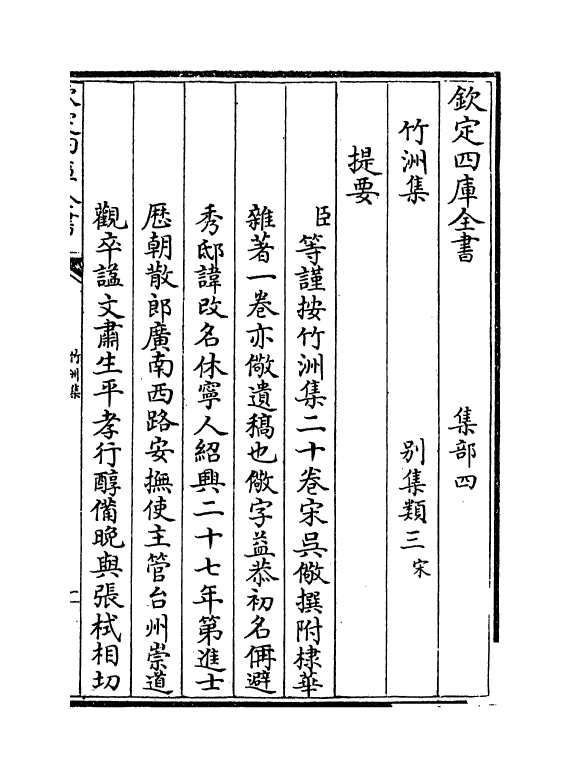 欽定四庫全書　集部四
竹洲集　别集類三宋
提要
臣等謹按竹洲集二十卷宋吳儆撰附棣華
雜著一卷亦儆遺稿也儆字益恭初名偁避
秀邸諱改名休寧人紹興二十七年第進士
歴朝散郎廣南西路安撫使主管台州崇道
觀卒諡文肅生平孝行醇備晚與張栻相切
欽定四庫全書
竹洲集
一